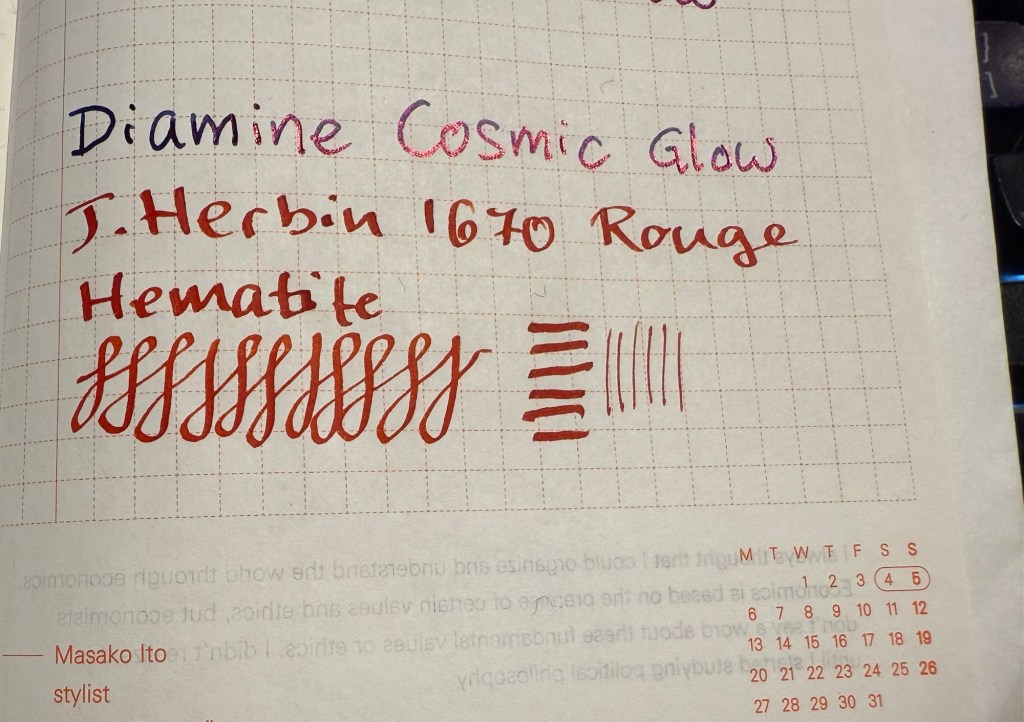 Diamine Cosmic Glow
J. Herbin 1670 Rouge
Hematite
M T W T F S S
1 2 3 4 5
6 7 8 9 10 11 12
13 14 15 16 17 18 19
20 21 22 23 24 25 26
27 28 29 30 31
Masako Ito
stylist
}
]